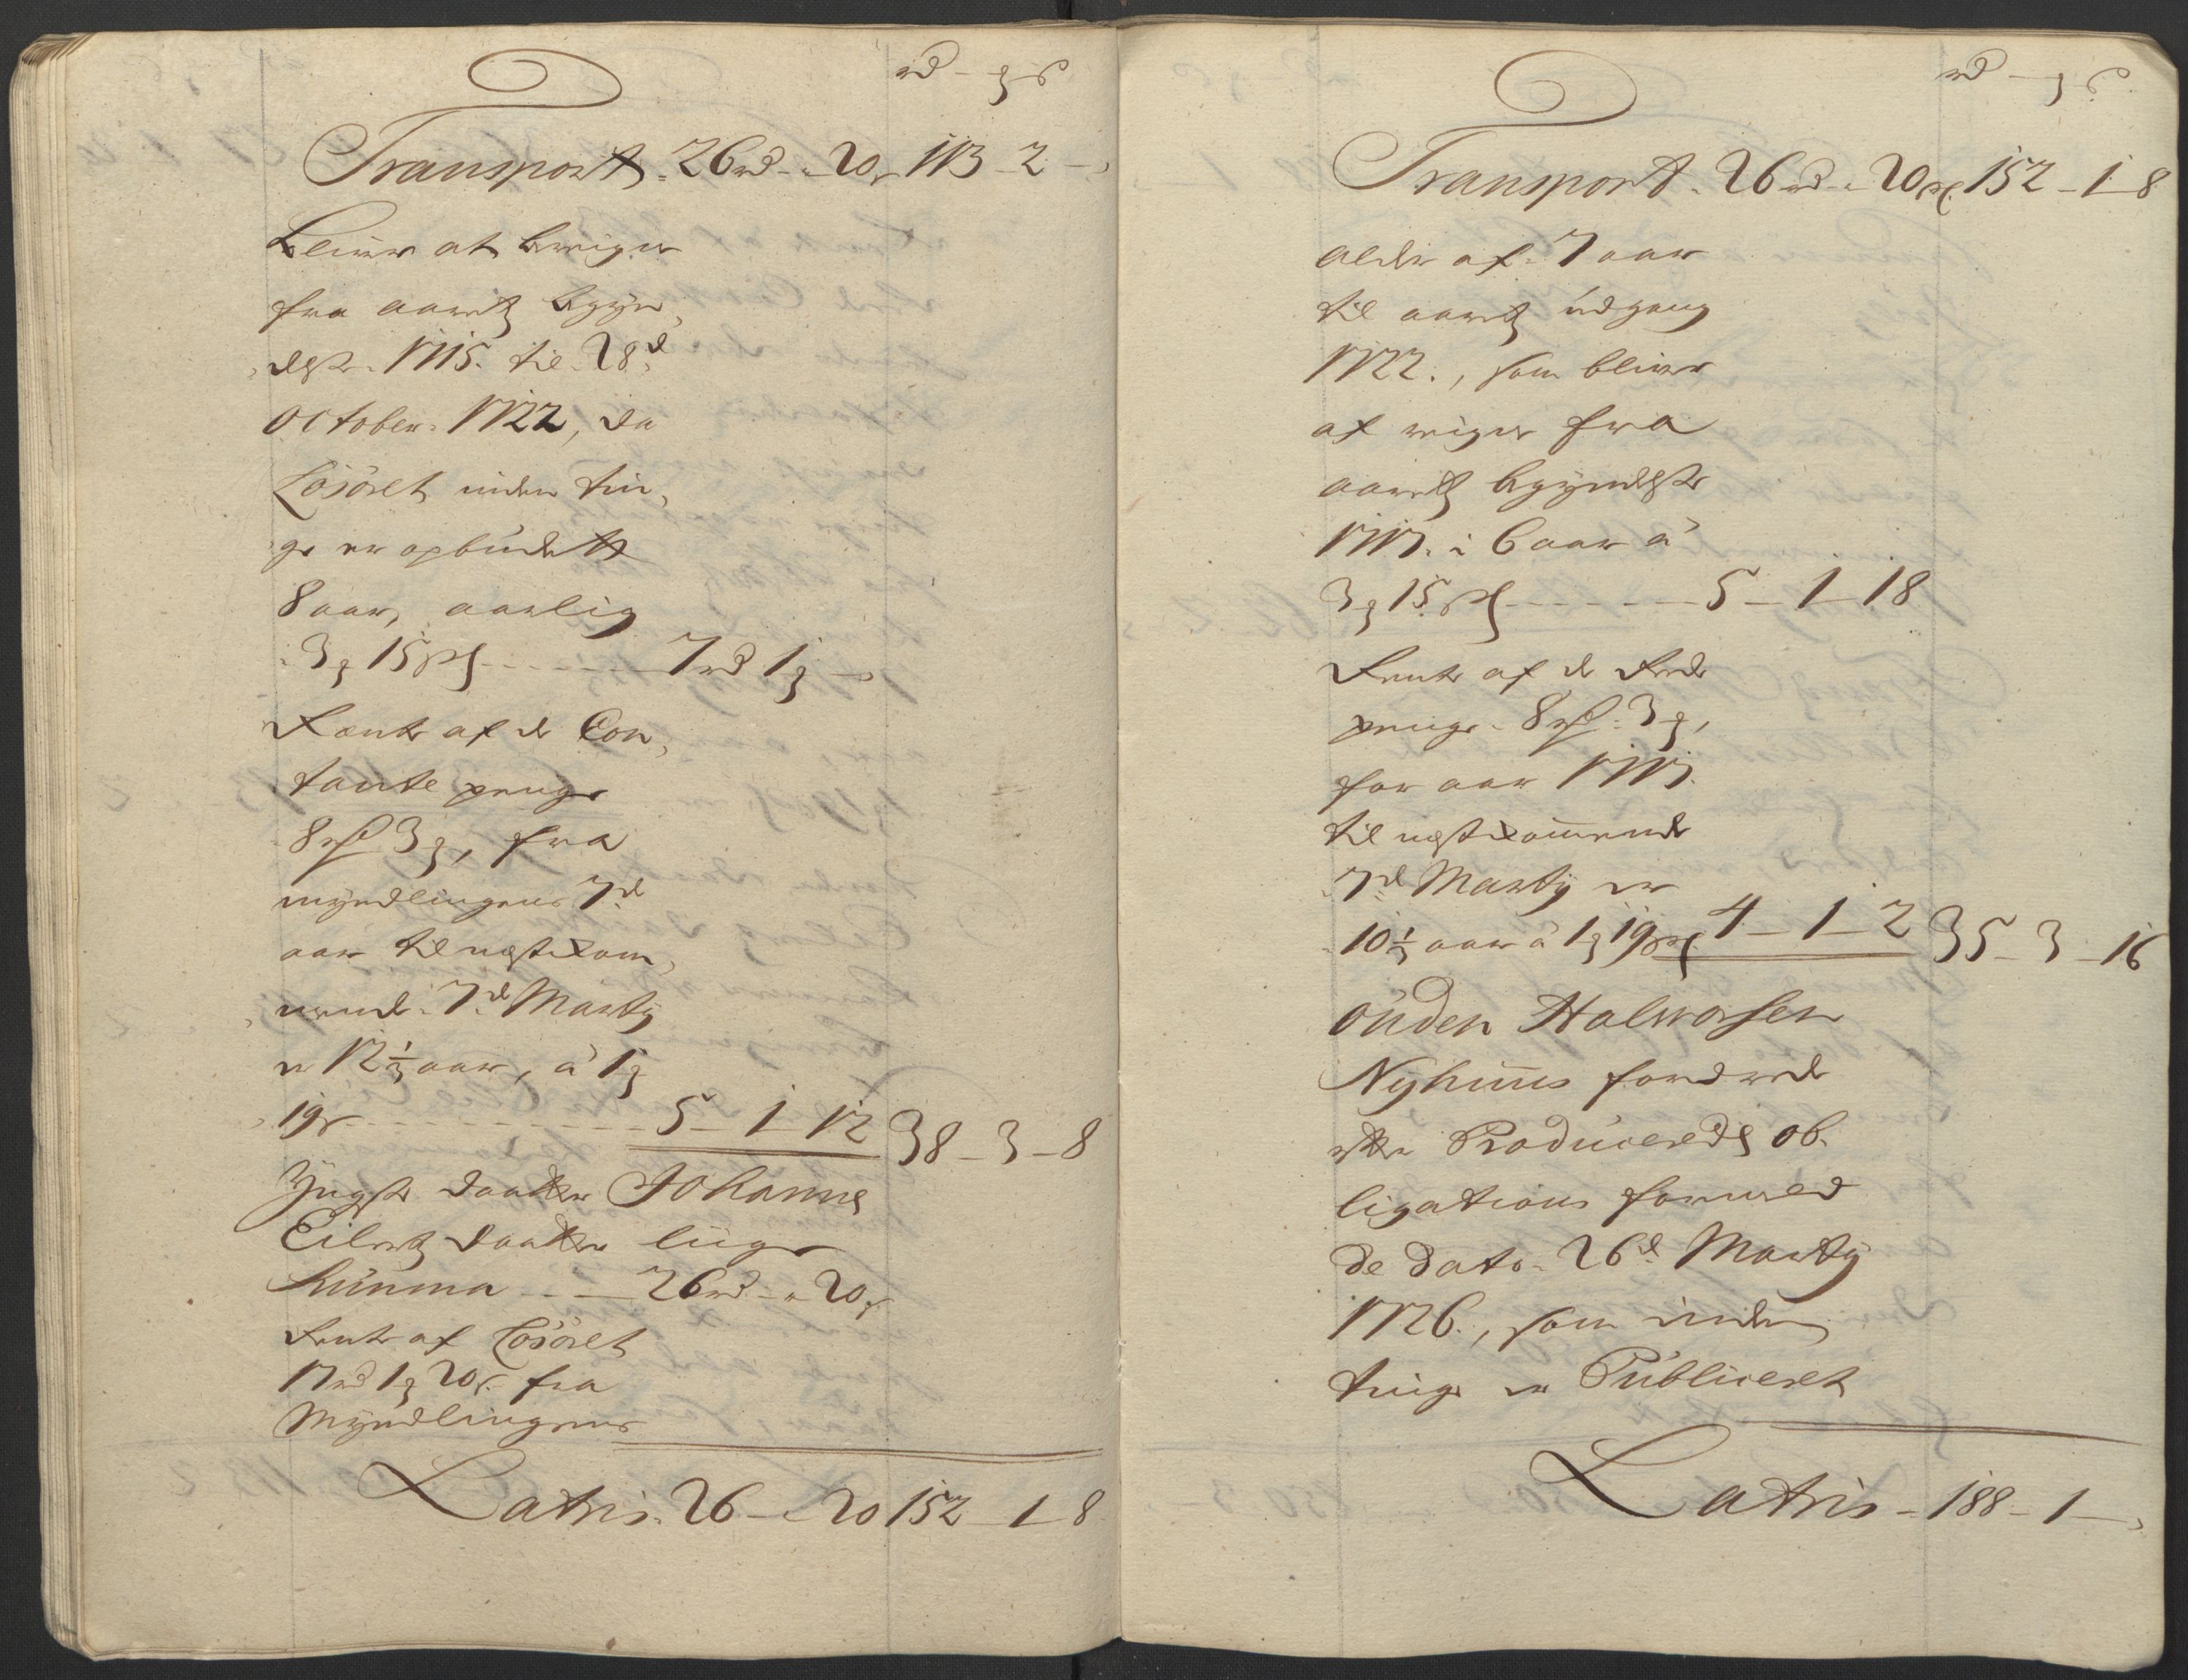 rd - ꝫ - s
Transport. 26rd - „ 20s 113 - 2 - „
bliver at beregne
fra aarets begyn,
delse 1715. til 28de
October 1722, da
Løsöret inden tin,
ge er opbudett
8 aar, aarlig
3ꝫ 15s - - - 7rd 1ꝫ - „
Rente af de Con,
tante penge
8rd 3ꝫ, fra
myndlingens 7de
aar til nestkom,
mende 7de Marty
er 12½ aar, à 1ꝫ
19s - - - 5 - 1 - 12 38 - 3 - 8
Yngste daatter Johanne
Eilertz daatter liige
Summa - - 26rd - „ 20s
Rente af Løsöret
17rd 1ꝫ 20s. fra
Myndlingens
Latris. 26 - „ 20 152 - 1 - 8
rd - ꝫ s
Transport. 26rd - „ 20s 152 - 1 - 8
alder af 7 aar
til aarets udgang
1722., som bliver
at reigne fra
aarets begyndelse
1717. i 6 aar à
3ꝫ 15s - - - 5 - 1 - 18
Rente af de Rede
penge 8rd 3ꝫ,
for aar 1717.
til nestkommende
7de Marty er
10½ aar à 1ꝫ 19s 4 - 1 - 2 35 - 3 - 16
Ouden Halvorsen
Nyhuus fordrede
efter Produceredes ob.
ligations formeld
de dato 26de Marty
1726., som inden
tinge er Publiceret
Latris - 188 - 1 - „